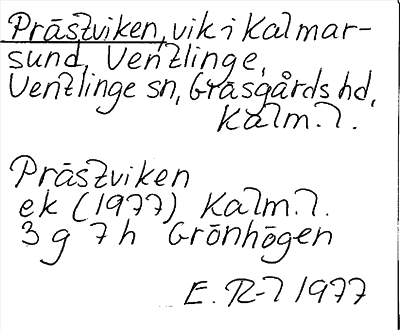 Prästviken, vik i Kalmar-
sund, Ventlinge,
Ventlinge sn, Gräsgårds hd,
Kalm. l.
Prästviken
ek (1977) Kalm. l.
3 g 7 h Grönhögen
E. R-l 1977